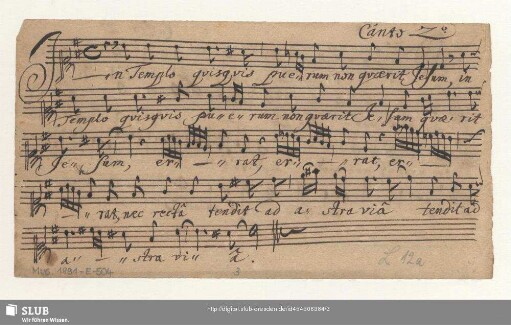 Cánto 2o
in Templo quisquis pue,,rum non quærit Jesum, in
Templo quisquis pu,,e,,rum non quærit Je,,sum quæ,,rit
Je,,sum, er,,—,,rat, er,,—,,rat, er,,—
—,,rat, nec rectâ tendit ad a,,stra viâ tendit ad
a,,—,,stra vi,,â.
Mus. 1991-E-504
3
L 12a
SLUB
Wir führen Wissen.